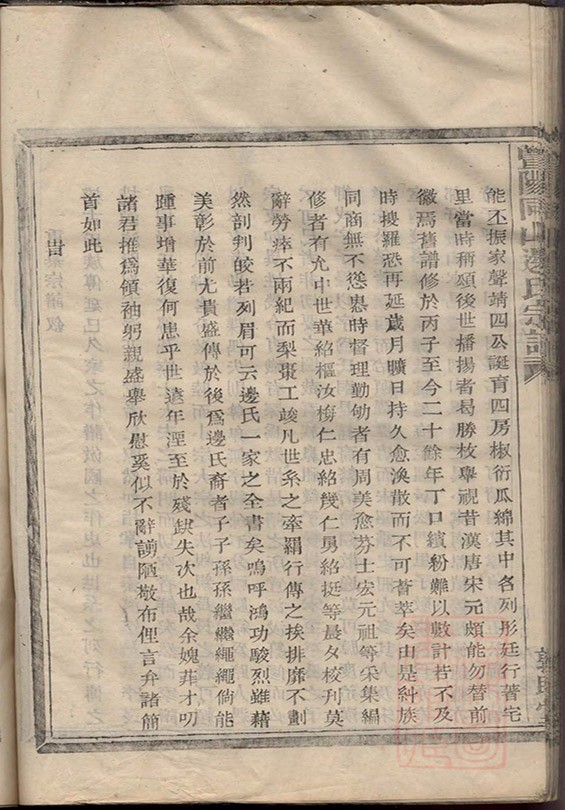 能丕振家聲靖四公誕育四房椒衍瓜綿其中各列彤廷行著宅
里當時稱頌後世播揚者曷勝枚舉視昔漢唐宋元頗能勿替前
徽焉舊譜修於丙子至今二十餘年丁口繽紛難以數計若不及
時搜羅恐再延歲月曠日持久愈渙散而不可薈萃矣由是糾族
同商無不慫恿時督理勤劬者有周美愈芬士宏元祖等采集編
修者有允中世華紹樞汝梅仁忠紹幾仁勇紹挺等晨夕校刋莫
辭勞瘁不兩紀而梨棗工竣凡世系之牽羂行傳之挨排靡不劃
然剖判皎若列眉可云邊氏一家之全書矣嗚呼鴻功駿烈雖藉
美彰於前尤貴盛傳於後為邊氏裔者子子孫孫繼繼繩繩倘能
踵事增華復何患乎世遠年湮至於殘缺失次也哉余媿菲才叨
諸君推為領袖躬親盛舉欣慰奚似不辭謭陋敬布俚言弁諸簡
首如此
旹
暨陽同山邊氏宗譜